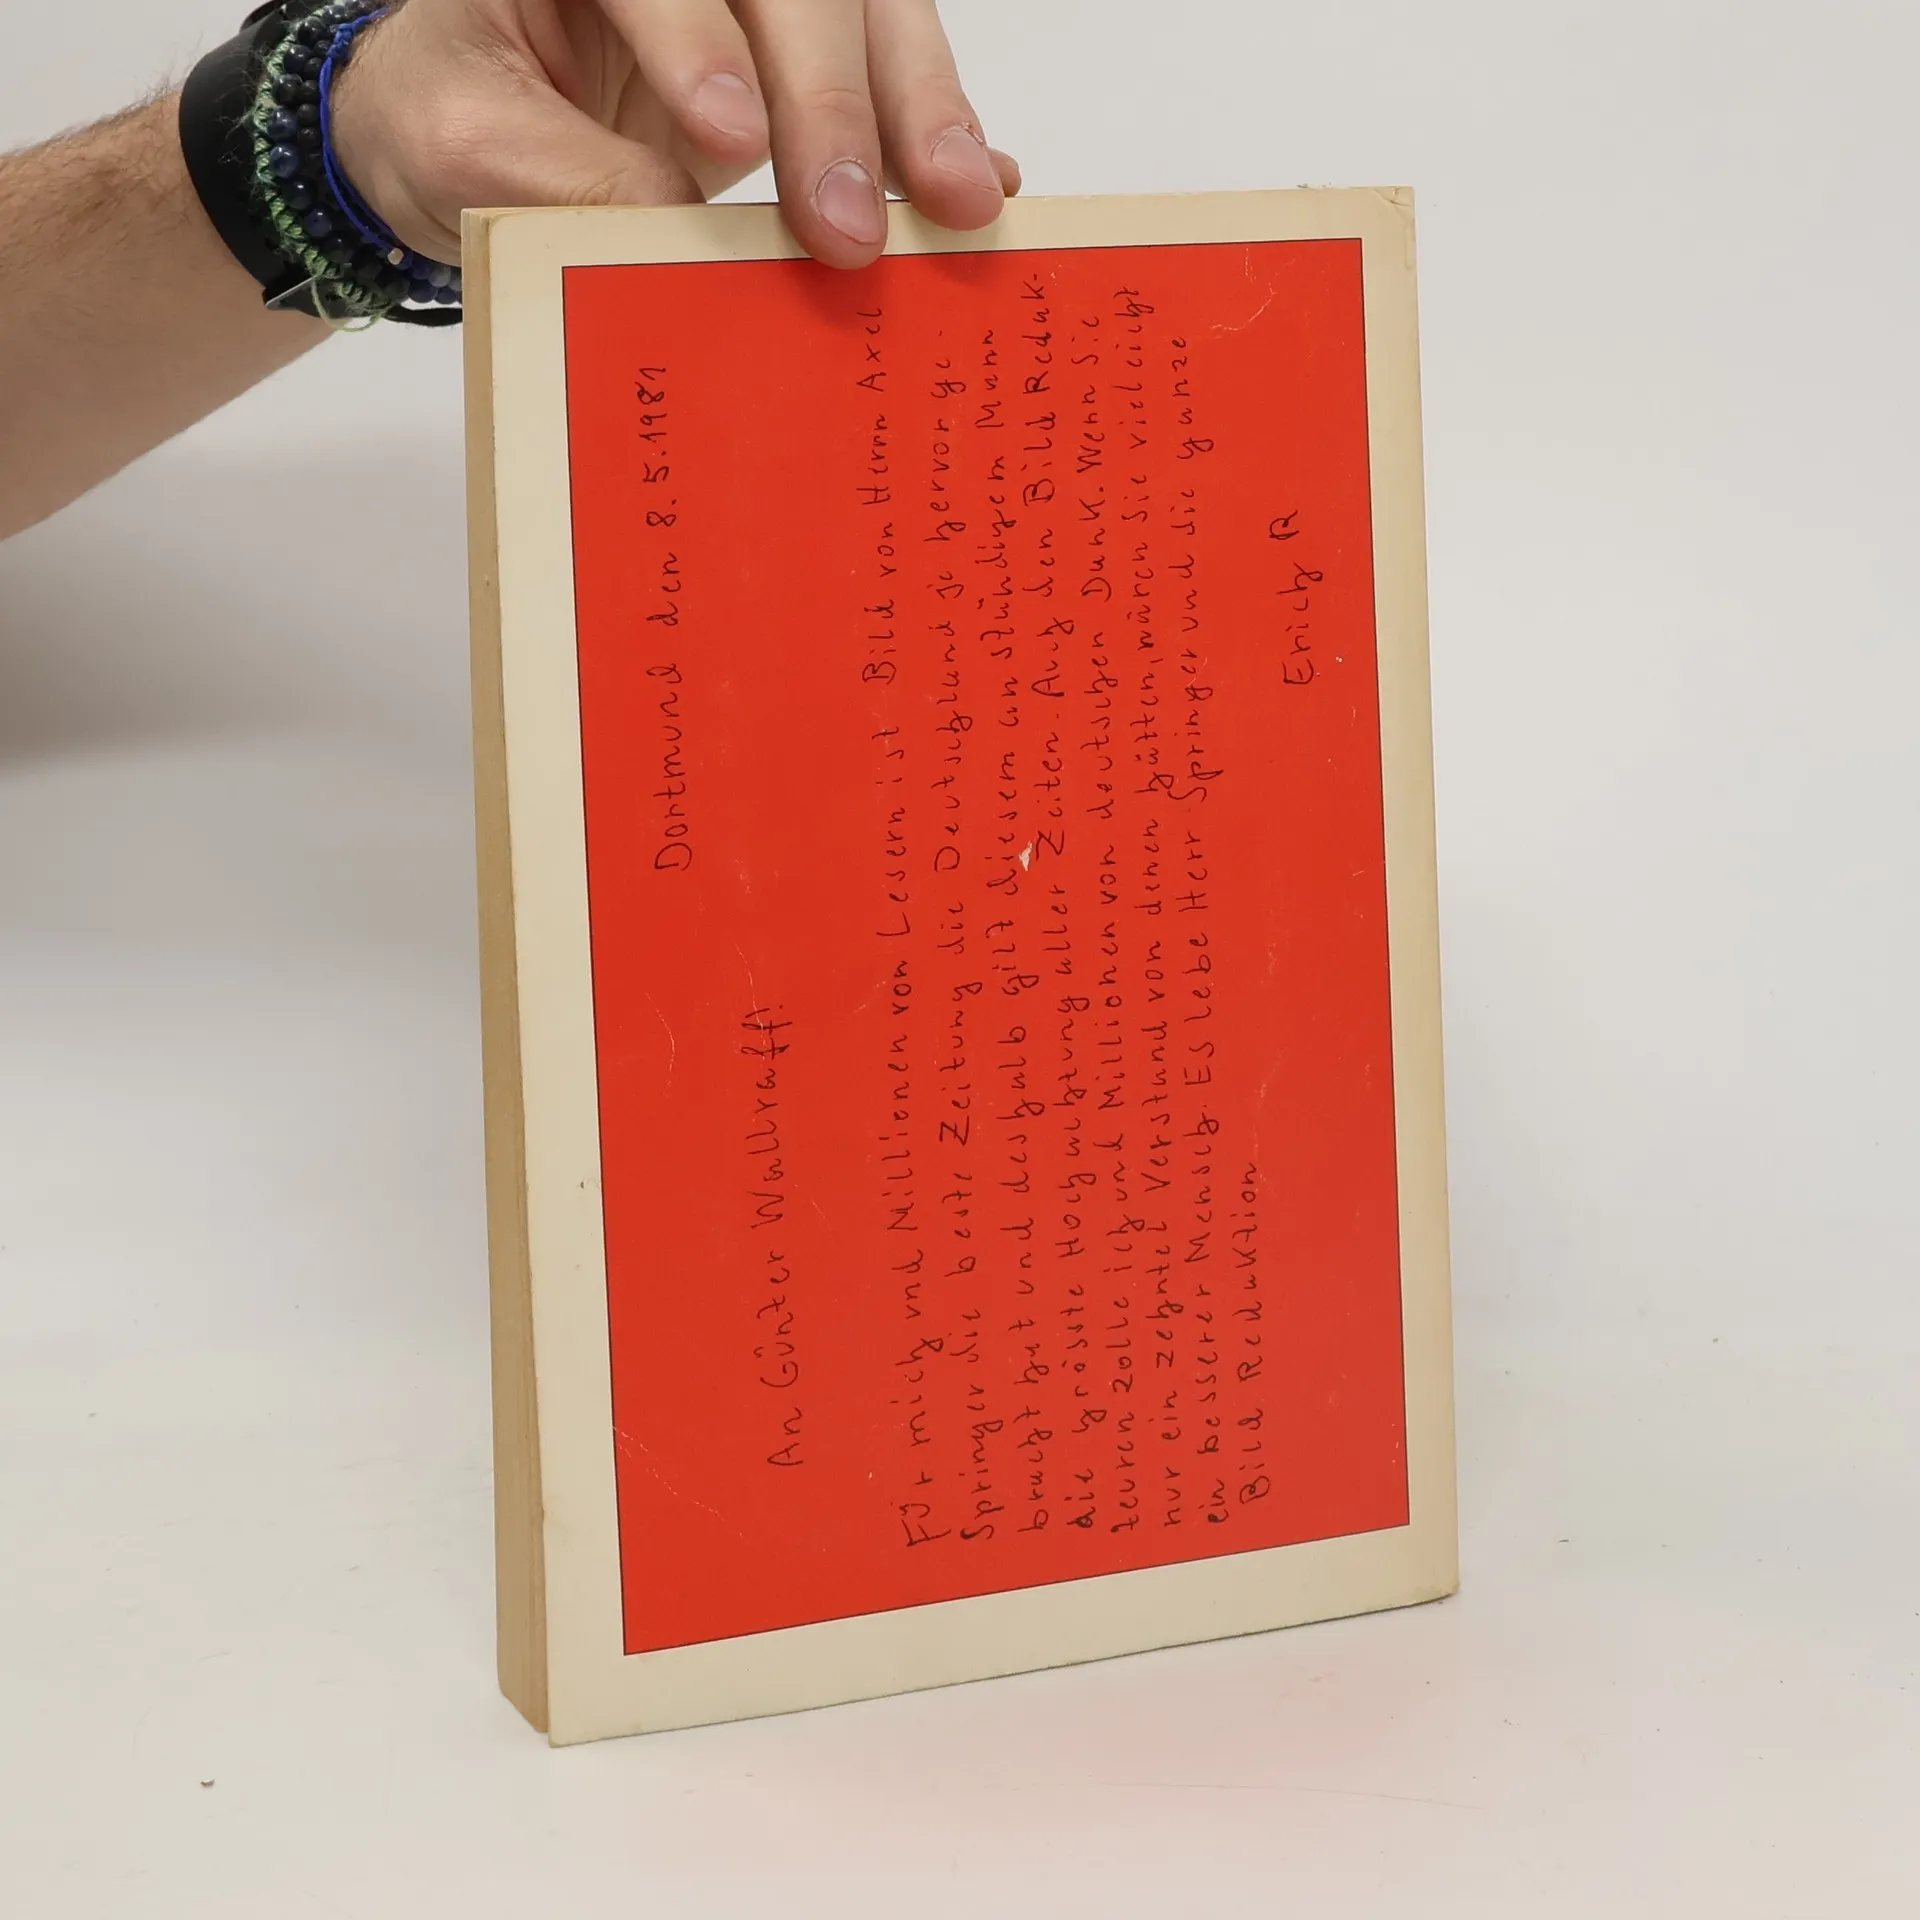 Dortmund den 8.5.1981
An Günter Wallraff!
Für mich und Millionen von Lesern ist Bild von Herrn Axel
Springer die beste Zeitung die Deutschland je hervor ge-
bracht hat und deshalb gilt diesem anständigem Mann
die grösste Hochachtung aller Zeiten. Auch den Bild Redak-
teuren zolle ich und Millionen von deutschen Dank. Wenn Sie
nur ein zehntel Verstand von denen hätten, wären Sie vieleicht
ein besserer Mensch. Es Lebe Herr Springer und die ganze
Bild Redaktion
Erich R